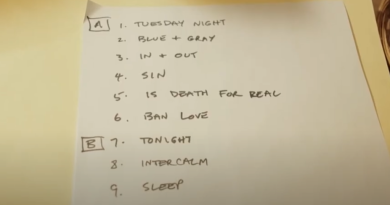 A 1. TUESDAY NIGHT
2. BLUE + GRAY
3. IN + OUT
4. SIN
5. IS DEATH FOR REAL
6. BAN LOVE
B 7. TONIGHT
8. INTERCALM
9. SLEEP